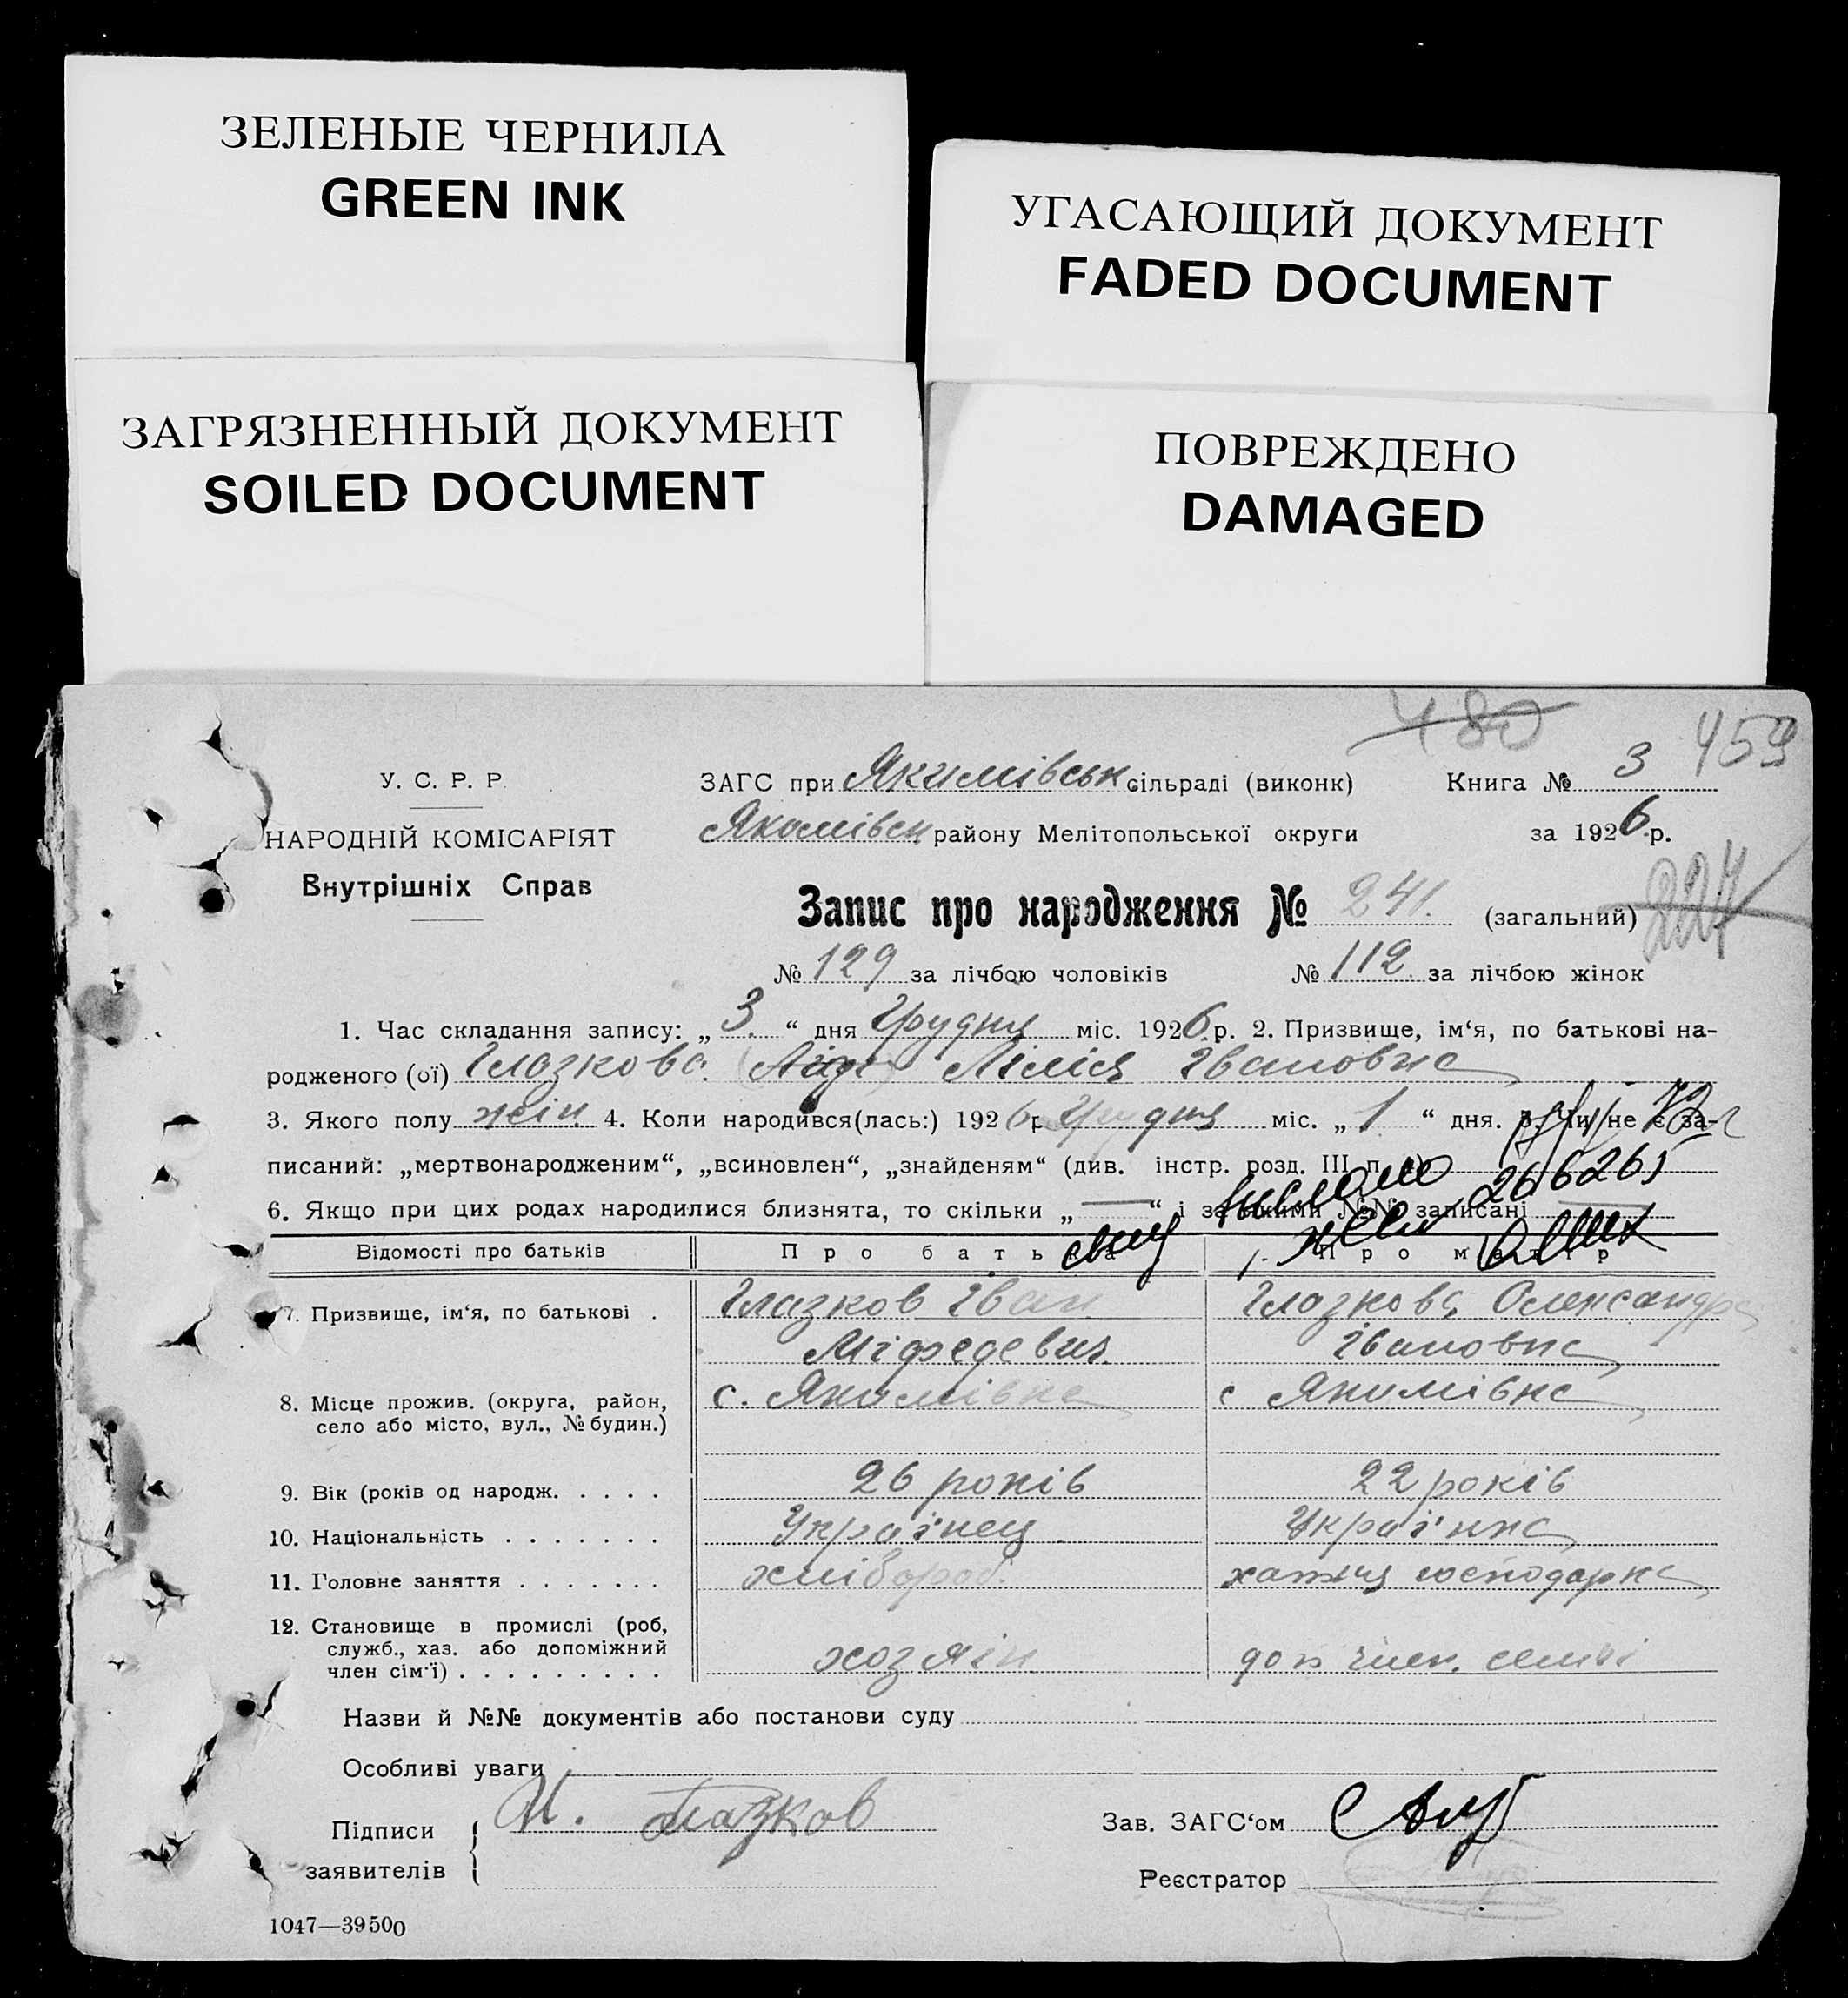 ЗЕЛЕНЫЕ ЧЕРНИЛА
GREEN INK
УГАСАЮЩИЙ ДОКУМЕНТ
FADED DOCUMENT
ЗАГРЯЗНЕННЫЙ ДОКУМЕНТ
SOILED DOCUMENT
ПОВРЕЖДЕНО
DAMAGED
480 459
У. С. Р. Р.
НАРОДНІЙ КОМІСАРІЯТ
Внутрішніх Справ
ЗАГС при Якимівськ сільраді (виконк) Книга № 3
Якимівськ району Мелітопольської округи за 1926 р.
Запис про народження № 241. (загальний) 227
№ 129 за лічбою чоловіків № 112 за лічбою жінок
1. Час складання запису: „ 3 “ дня Грудня міс. 1926 р. 2. Призвище, ім‘я, по батькові на-
родженого (ої) Глазкова Лілія Івановна
3. Якого полу жін. 4. Коли народився(лась:) 1926 р. Грудня міс. „ 1 “ дня. 5. Чи не є за-
писаний: „мертвонародженим“, „всиновлен“, „знайденям“ (див. інстр. розд. III п.
266265
6. Якщо при цих родах народилися близнята, то скільки „ — “ і за якими №№ записані —
Відомості про батьків Про батька Про матір
7. Призвище, ім‘я, по батькові . Глазков Іван Глазкова Олександра
Міфодевич Івановна
8. Місце прожив. (округа, район, с. Якимівка с Якимівка
село або місто, вул., № будин.)
9. Вік (років од народж. . . . . 26 років 22 років
10. Національність . . . . . . . Українец Українка
11. Головне заняття . . . . . . . хлібороб. хатня господарка
12. Становище в промислі (роб,
служб., хаз. або допоміжний
член сім‘ї) . . . . . . . . . хозяїн доп член. семьі
Назви й №№ документів або постанови суду
Особливі уваги
Підписи И. Глазков Зав. ЗАГС‘ом
заявителів Реєстратор
1047—39500